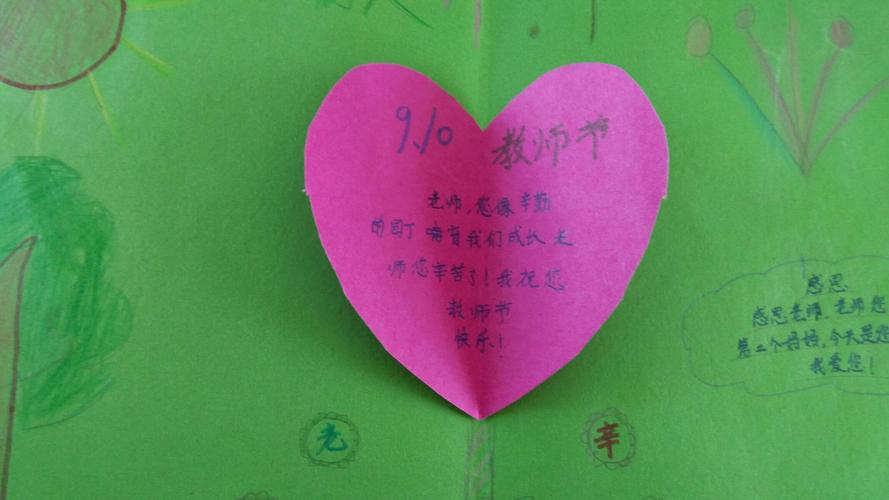 9.10 教师节
老师,您像辛勤
的园丁 哺育我们成长 老
师您辛苦了!我祝您
教师节
快乐!
感恩
感恩老师,老师您
第二个妈妈,今天是您
我爱您!
老 辛